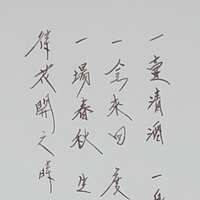 一壺清酒 一
一念來回 度
一場春秋 生
待花開之時